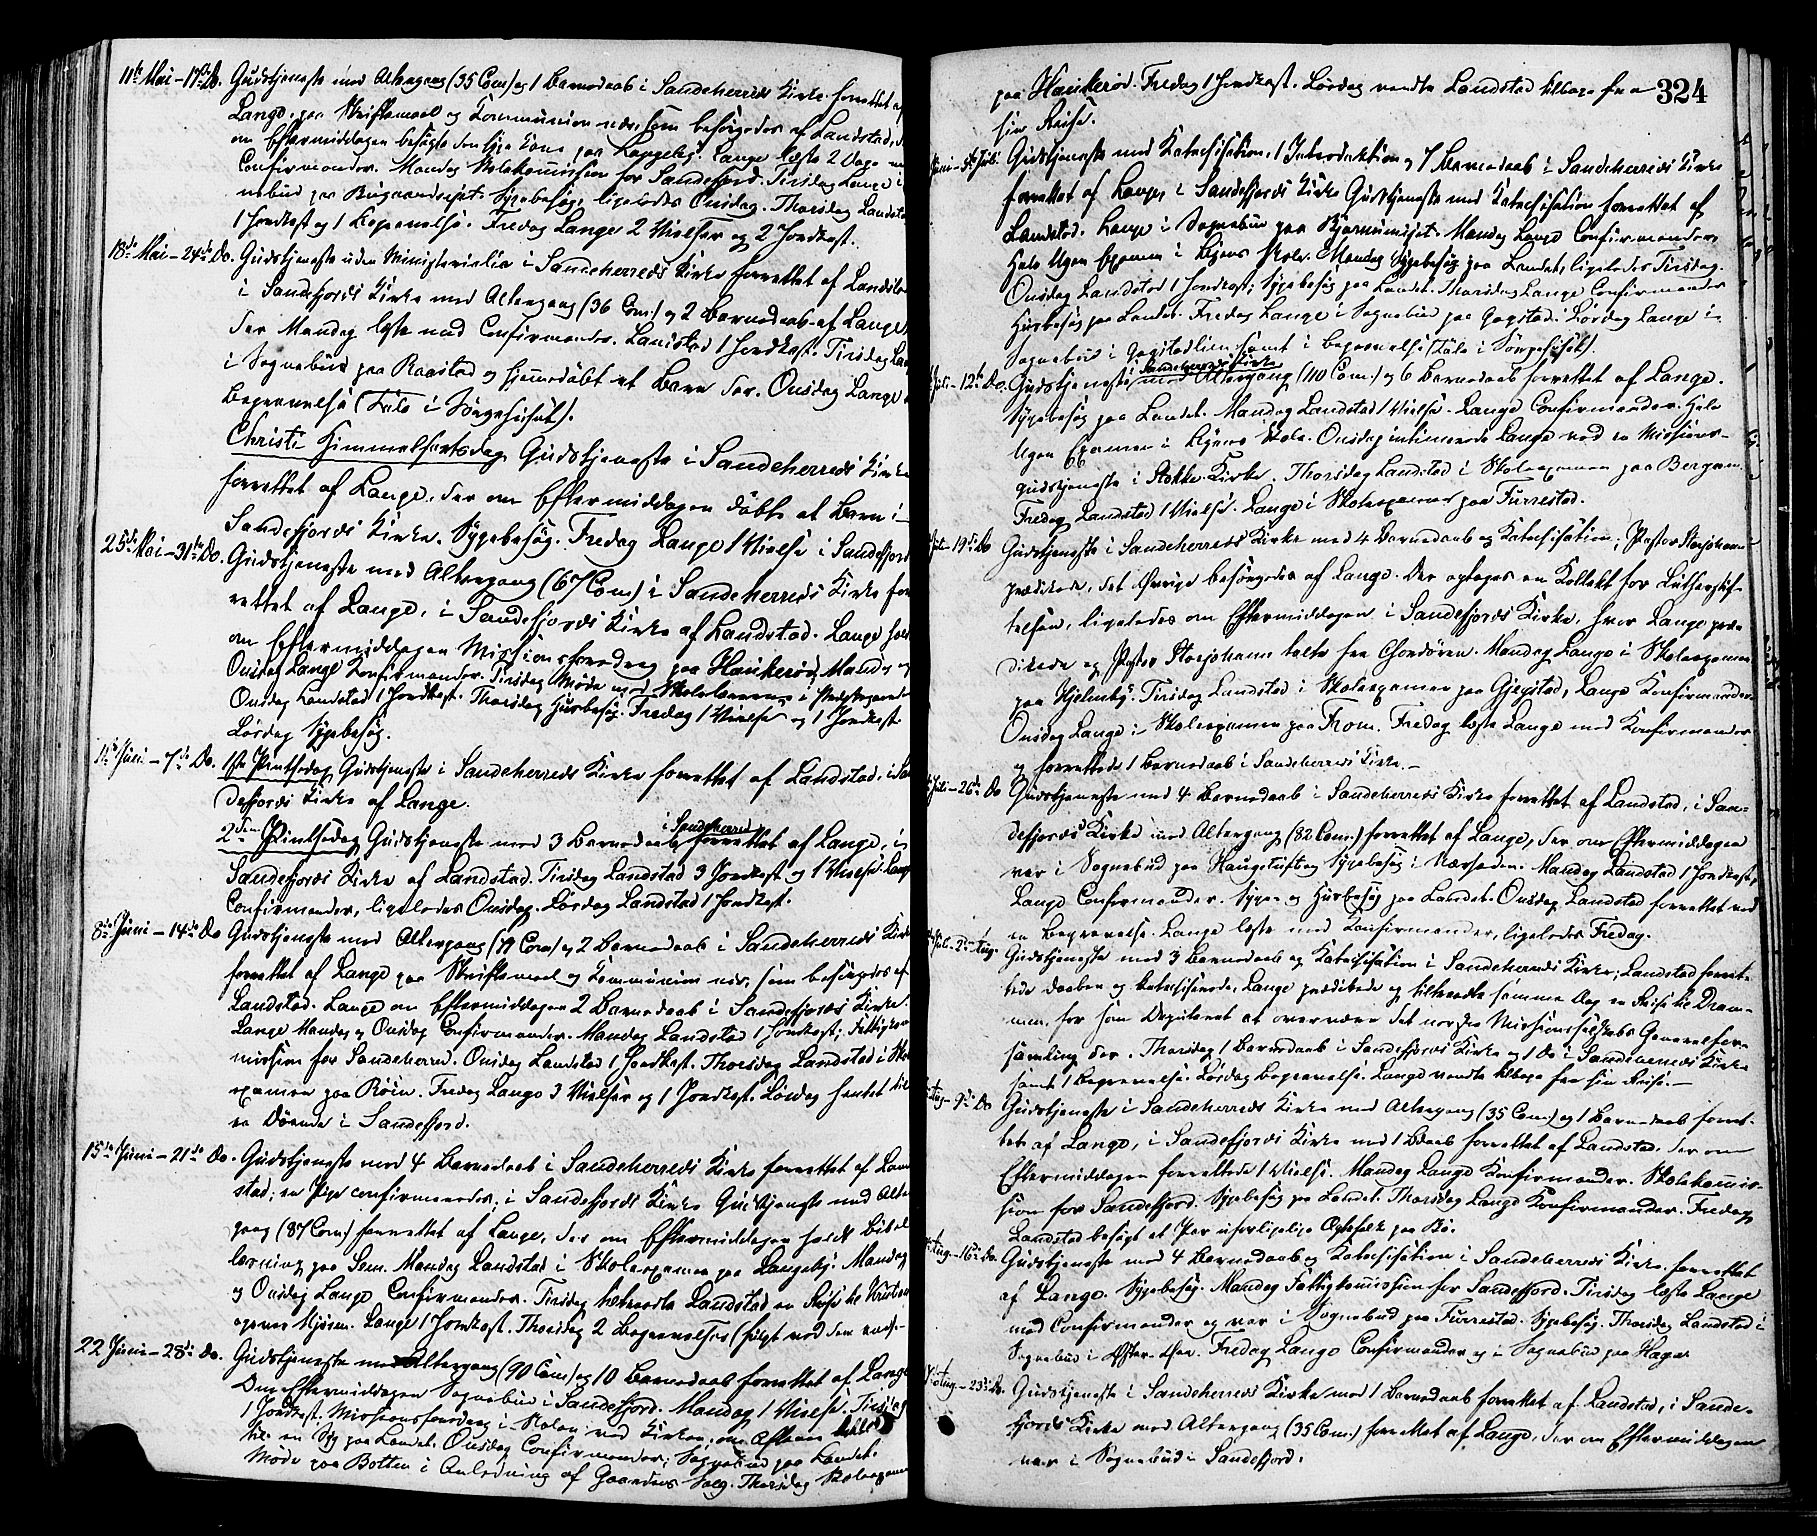 11te Mai – 17de Do. Gudstjeneste med Altergang (35 Com) og 1 Barnedaab i Sandeherreds Kirke forrettet af
Lange, paa Skriftemaal og Kommunion nær, som besörgedes af Landstad,
om Eftermiddagen besögte den syge Kone paa Lange læste 2 Dage
Confirmander. Mandag Skolekomission for Sandefjord. Tirsdag Lange i
nebud paa Sygebesög, ligeledes Onsdag. Thorsdag Landstad
1 Jordkast og 1 Begravelse. Fredag Lange 2 Vielser og 2 Jordkast.
18de Mai – 24de Do. Gudstjeneste uden Ministerialia i Sandeherreds Kirke forrettet af Landstad
i Sandefjords Kirke med Altergang (36 Com) og 2 Barnedaab af Lange
der Mandag læste med Confirmander. Landstad 1 Jordkast. Tirsdag Lan
i Sognebud paa Raastad og hjemmedöbt et Barn der. Onsdag Lange
Begravelse (Tale i Sörgehuset).
Christi Himmelfartsdag Gudstjeneste i Sandeherreds Kirke
forrettet af Lange, der om Eftermiddagen döbte et Barn i
Sandefjords Kirke. Sygebesög. Fredag Lange 1 Vielse i Sandefjord
25de Mai – 31te Do. Gudstjeneste med Altergang (67 Com) i Sandeherreds Kirke for
rettet af Lange, i Sandefjords Kirke af Landstad. Lange holdt
om Eftermiddagen Missionsforedrag paa Haukeröd Mandag og
Onsdag Lange Konfirmander. Tirsdag Möde med Skolelærerne i
Onsdag Landstad 1 Jordkast. Thorsdag Husbesög. Fredag 1 Vielse og 1 Jordkast
Lördag Sygebesög.
1te Juni – 7de Do. 1ste Pintsedag Gudstjeneste i Sandeherreds Kirke forrettet af Landstad, i San
defjords Kirke af Lange.
i Sandeherred
2den Pintsedag Gudstjeneste med 3 Barnedaab forrettet af Lange, i
Sandefjords Kirke af Landstad. Tirsdag Landstad 3 Jordkast og 1 Vielse. Lange
Confirmander, ligeledes Onsdag. Lördag Landstad 1 Jordkast.
8de Juni – 14de Do Gudstjeneste med Altergang (71 Com) og 2 Barnedaab i Sandeherreds Kirke
forrettet af Lange paa Skriftemaal og Kommunion nær, som besörgedes af
Landstad. Lange om Eftermiddagen 2 Barnedaab i Sandefjords Kirke.
Lange Mandag og Onsdag Confirmander. Mandag Landstad 1 Jordkast; Fattigkom
mission for Sandeherred. Onsdag Landstad 1 Jordkast. Thorsdag Landstad i Skole
examen paa Röim. Fredag Lange 3 Vielser og 1 Jordkast. Lördag hentet til
en Döende i Sandefjord.
15de Juni – 21de Do. Gudstjeneste med 4 Barnedaab i Sandeherreds Kirke forrettet af Land
stad; en Pige confirmeredes; i Sandefjords Kirke Gudstjeneste med Alter
gang (87 Com) forrettet af Lange, der om Eftermiddagen holdt Bibel
læsning paa Sem. Mandag Landstad i Skoleexamen paa Langeby. Mandag
og Onsdag Lange Confirmander. Tirsdag tiltraadte Landstad en Reise til
Mjösen. Lange 1 Jordkast. Thorsdag 2 Begravelser (fulgt ved den ene)
22 Juni – 28de Do. Gudstjeneste med Altergang (90 Com) og 10 Barnedaab forrettet af Lange
Om Eftermiddagen Sognebud i Sandefjord. Mandag 1 Vielse. Tirsdag
1 Jordkast. Missionsforedrag i Skolen ved Kirken; om Aftenen
til en Syg paa Landet. Onsdag Confirmander; Sognebud paa Landet.
Möde paa Botten i Anledning af Gaardens Salg. Thorsdag Skoleexamen
324
paa Haukeröd. Fredag 1 Jordkast. Lördag vendte Landstad tilbage fra
sin Reise.
Juni – 5te Juli Gudstjeneste med Katechisation, 1 Introduktion og 7 Barnedaab i Sandeherreds Kirke
forrettet af Lange, i Sandefjords Kirke Gudstjeneste med Katechisation forrettet af
Landstad. Lange i Sognebud paa Mandag Lange Confirmander,
hele Ugen Examen i Byens Skole. Mandag Sygebesög paa Landet, ligeledes Tirsdag.
Onsdag Landstad 1 Jordkast; Sygebesög paa Landet. Thorsdag Lange Confirmander
Husbesög paa Landet. Fredag Lange i Sognebud paa Gogstad. Lördag Lange i
Sognebud i Gogstadlien samt i Begravelse (Tale i Sörgehuset).
i Sandeherreds Kirke
Juli – 12te Do. Gudstjeneste med Altergang (110 Com.) og 6 Barnedaab forrettet af Lange.
Sygebesög paa Landet. Mandag Landstad 1 Vielse. Lange Confirmander. Hele
Ugen Examen i Byens Skole. Onsdag intimerede Lange ved en Missions-
gudstjeneste i Stokke Kirke. Thorsdag Landstad i Skoleexamen paa Bergan.
Fredag Landstad 1 Vielse. Lange i Skoleexamen paa Furrestad.
Juli – 19de Do Gudstjeneste i Sandeherreds Kirke med 4 Barnedaab og Katechisation; Pastor Storjohann
prædikede, det Övrige besörgedes af Lange. Der optoges en Kollekt for Lutherstif-
telsen, ligeledes om Eftermiddagen i Sandefjords Kirke, hvor Lange præ-
dikede og Pastor Storjohann talte fra Chordören. Mandag Lange i Skoleexamen
paa Hjelmby. Tirsdag Landstad i Skoleexamen paa Gjegstad, Lange Konfirmander.
Onsdag Lange i Skoleexamen paa From. Fredag læste Lange med Konfirmander
og forrettede 1 Barnedaab i Sandeherreds Kirke.–
Juli – 26de Do Gudstjeneste med 4 Barnedaab i Sandeherreds Kirke forrettet af Landstad, i San-
defjords Kirke med Altergang (82 Com.) forrettet af Lange, der om Eftermiddagen
var i Sognebud paa Haugstuft og Sygebesög i Nærheden. Mandag Landstad 1 Jordkast,
Lange Confirmander. Syge- og Husbesög paa Landet. Onsdag Landstad forrettet ved
en Begravelse. Lange læste med Konfirmander, ligeledes Fredag.
Juli – 2den Aug. Gudstjeneste med 3 Barnedaab og Katechisation i Sandeherreds Kirke; Landstad forret-
tede Daaben og katechiserede, Lange prædikede og tiltraadte samme Dag en Reise til Dram-
men, for som Deputeret at overvære det norske Missionsselskabs Generalfor-
samling der. Thorsdag 1 Barnedaab i Sandefjords Kirke og 1 Do i Sandeherreds Kirke
samt 1 Begravelse. Lördag Begravelse. Lange vendte tilbage fra sin Reise.–
Aug – 9de Do Gudstjeneste i Sandeherreds Kirke med Altergang (35 Com.) og 1 Barnedaab forret-
tet af Lange, i Sandefjords Kirke med 1 Bdaab forrettet af Landstad, der om
Eftermiddagen forrettede 1 Vielse. Mandag Lange Konfirmander. Skolekomis-
sion for Sandefjord. Sygebesög paa Landet. Thorsdag Lange Konfirmander. Fredag
Landstad besögt et Par uforligelige Ægtefolk paa Bö.
Aug – 16de Do. Gudstjeneste med 4 Barnedaab og Katechisation i Sandeherreds Kirke forrettet
af Lange. Sygebesög. Mandag Fattigkomission for Sandefjord. Tirsdag læste Lange
med Confirmander og var i Sognebud paa Furrestad. Sygebesög. Thorsdag Landstad i
Sognebud i Öster-Öen. Fredag Lange Confirmander og i Sognebud paa Hagen
Aug – 23de Do. Gudstjeneste i Sandeherreds Kirke med 1 Barnedaab forrettet af Landstad, i Sande-
fjords Kirke med Altergang (35 Com.) forrettet af Lange, der om Eftermiddagen
var i Sognebud i Sandefjord.